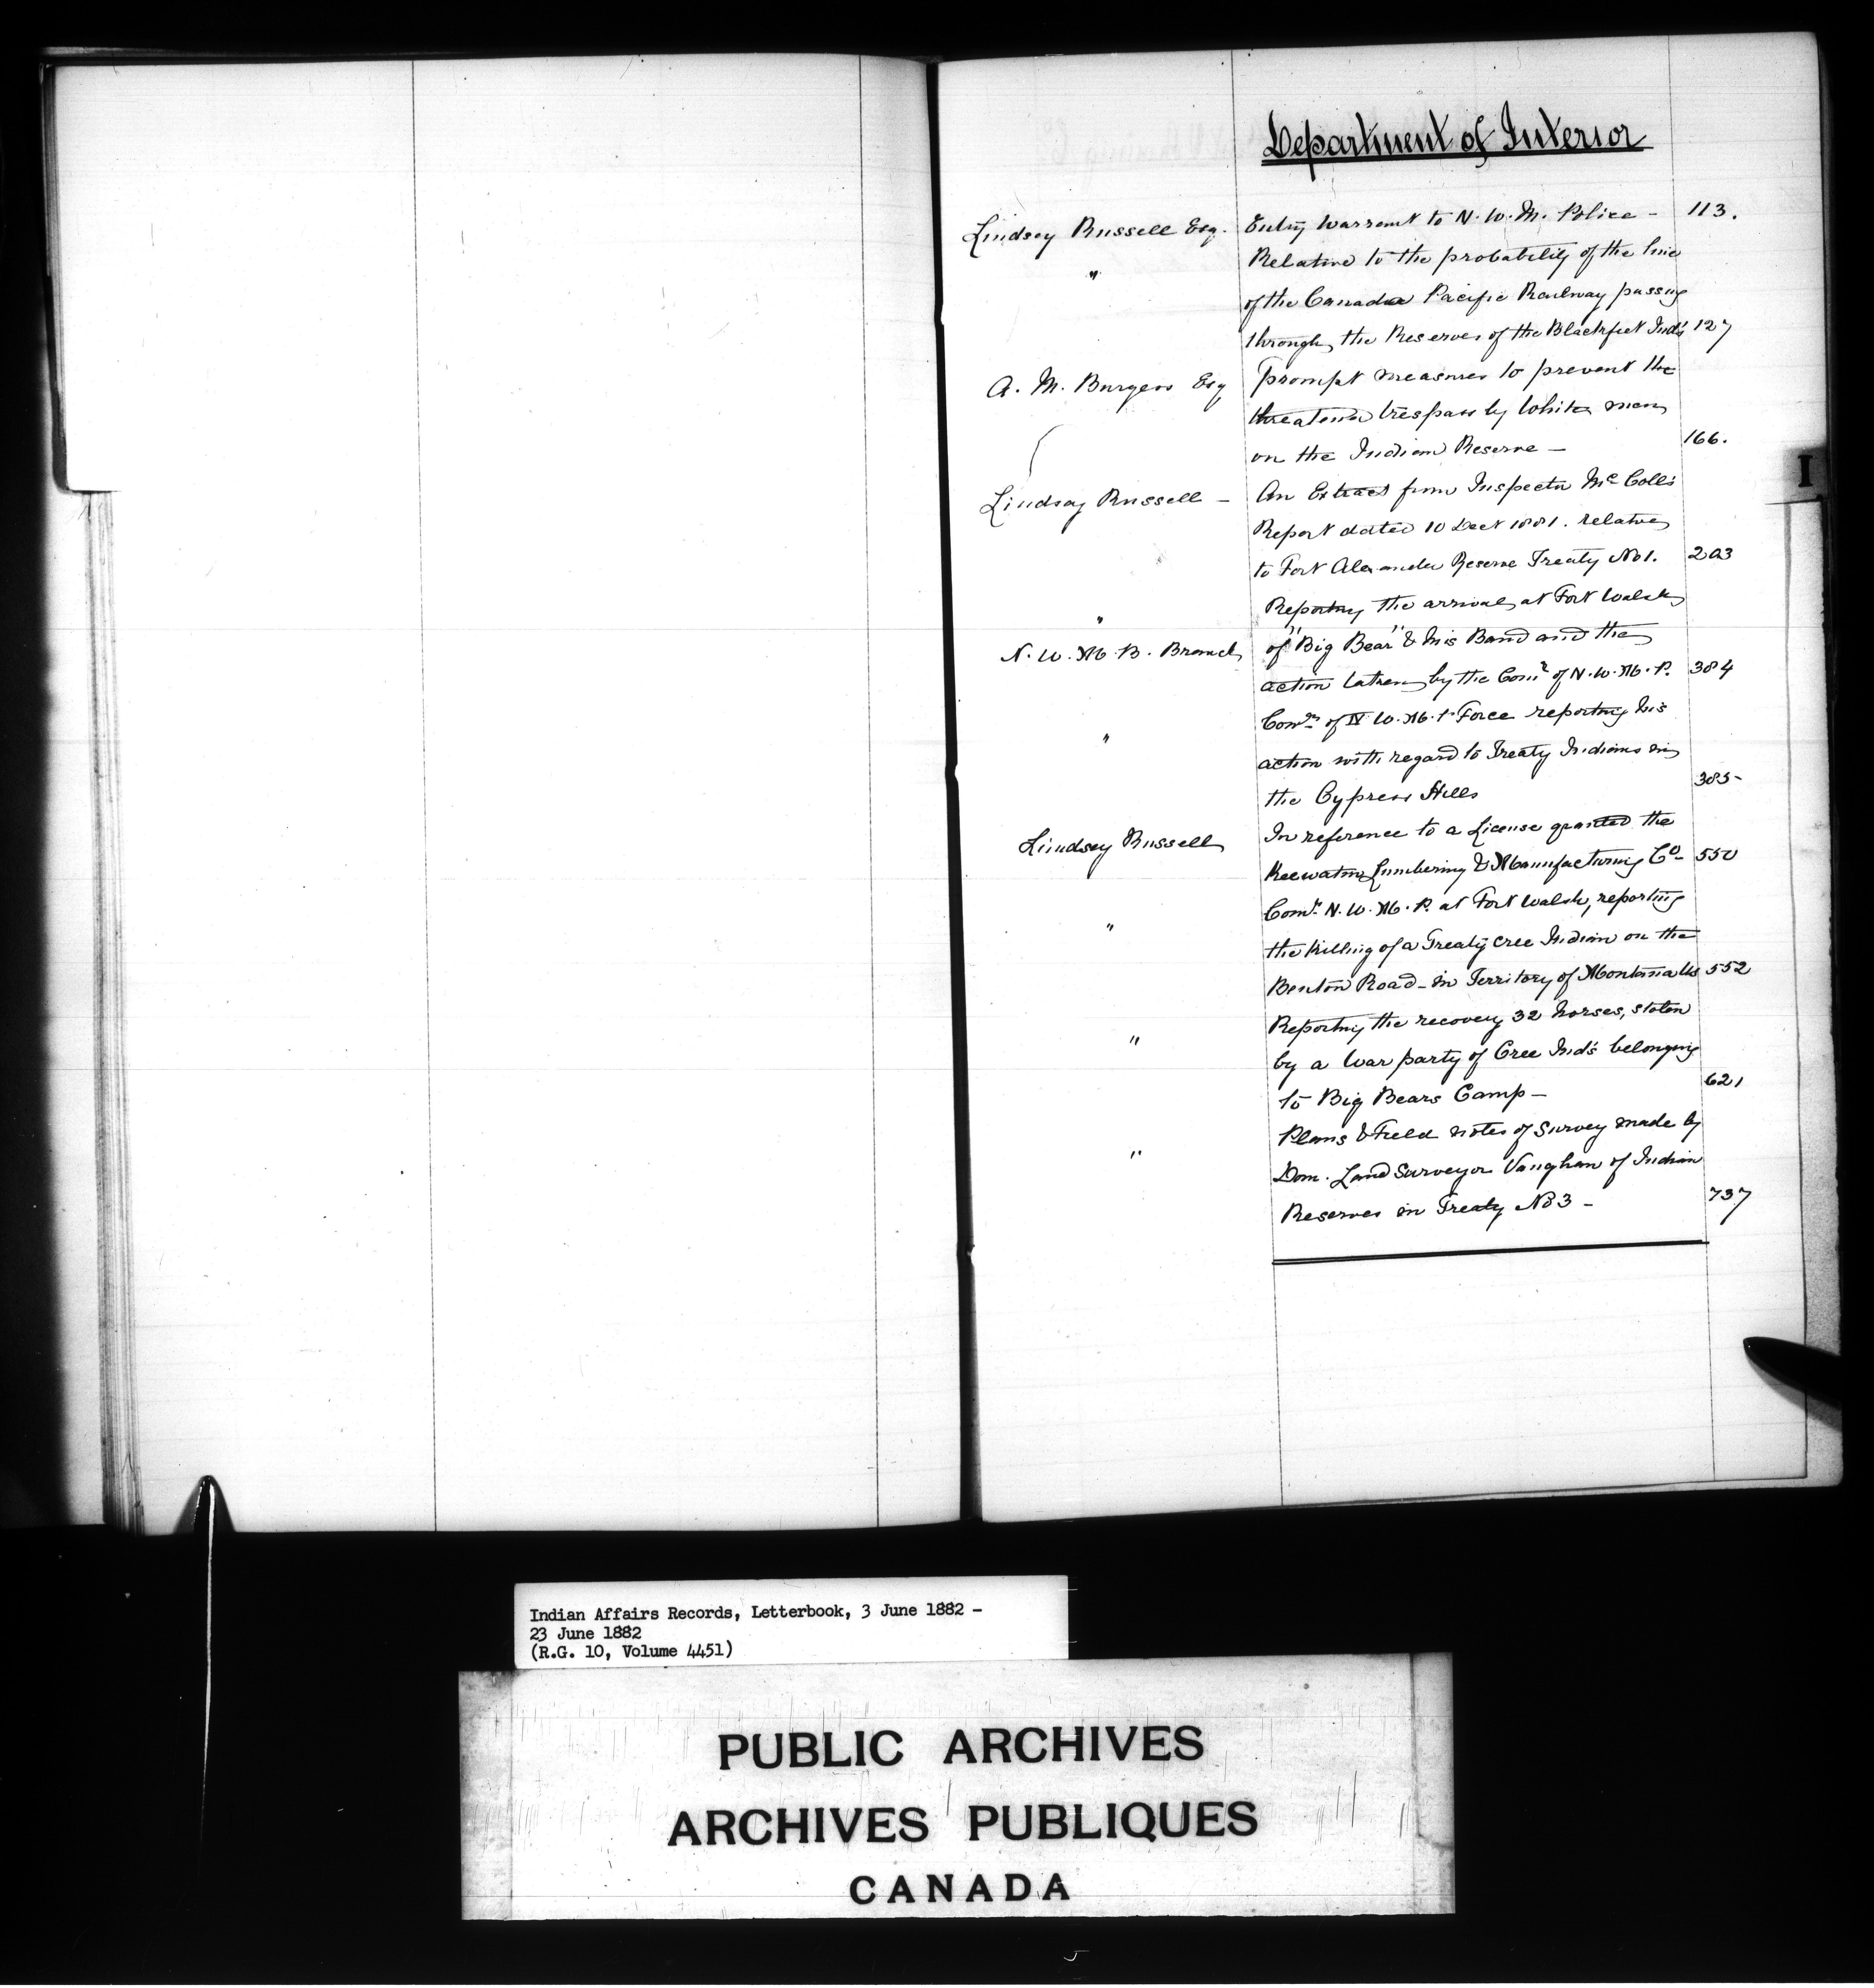 Department of Interior
Lindsey Russell Esq. Entry Warrant to N. W. M. Police - 113.
" Relative to the probability of the line
of the Canada Pacific Railway passing
through the Reserves of the Blackfeet Ind's 127
A. M. Burgess Esq Prompt measures to prevent the
threatened trespass by White men
on the Indian Reserve - 166.
Lindsay Russell - An Extract from Inspector Mc Colls
Report dated 10 Dect 1881. relative
to Fort Alexander Reserve Treaty No 1. 203
" Reporting the arrival at Fort Walsh
N. W. M. P. Branch of "Big Bear" & his Band and the
action taken by the Comr of N. W. M. P. 384
" Comr of N. W. M. P Force reporting his
action with regard to Treaty Indians in
the Cypress Hills 385-
Lindsey Russell In reference to a License granted the
Keewatin Lumbering & Manufacturing Co- 550
" Comr. N. W. M. P. at Fort Walsh, reporting
the killing of a Treaty Cree Indian on the
Benton Road - in Territory of Montana Us 552
" Reporting the recovery 32 horses, stolen
by a War party of Cree Ind's belonging
to Big Bears Camp - 621
" Plans & Field notes of Survey made by
Dom. Land Surveyor Vaughan of Indian
Reserves in Treaty No 3 - 737
I
Indian Affairs Records, Letterbook, 3 June 1882 -
23 June 1882
(R.G. 10, Volume 4451)
PUBLIC ARCHIVES
ARCHIVES PUBLIQUES
CANADA
5